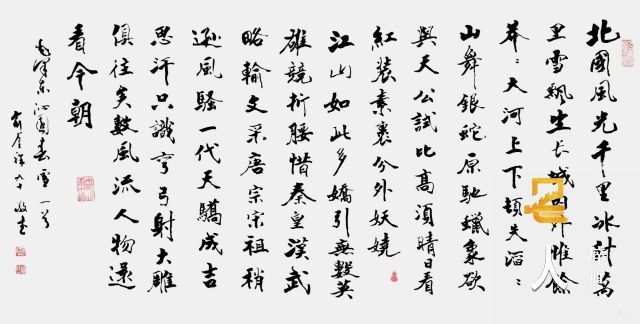 北國風光千里冰封萬
里雪飄望长城内外惟餘
莽〻大河上下頓失滔〻
山舞銀蛇原馳蠟象欲
與天公試比高須晴日看
紅裝素裹分外妖嬈
江山如此多嬌引無數英
雄競折腰惜秦皇漢武
略輸文采唐宗宋祖稍
遜風騷一代天驕成吉
思汗只識彎弓射大雕
俱往矣數風流人物還
看今朝
毛澤东沁園春雪一首
九十敬書
人